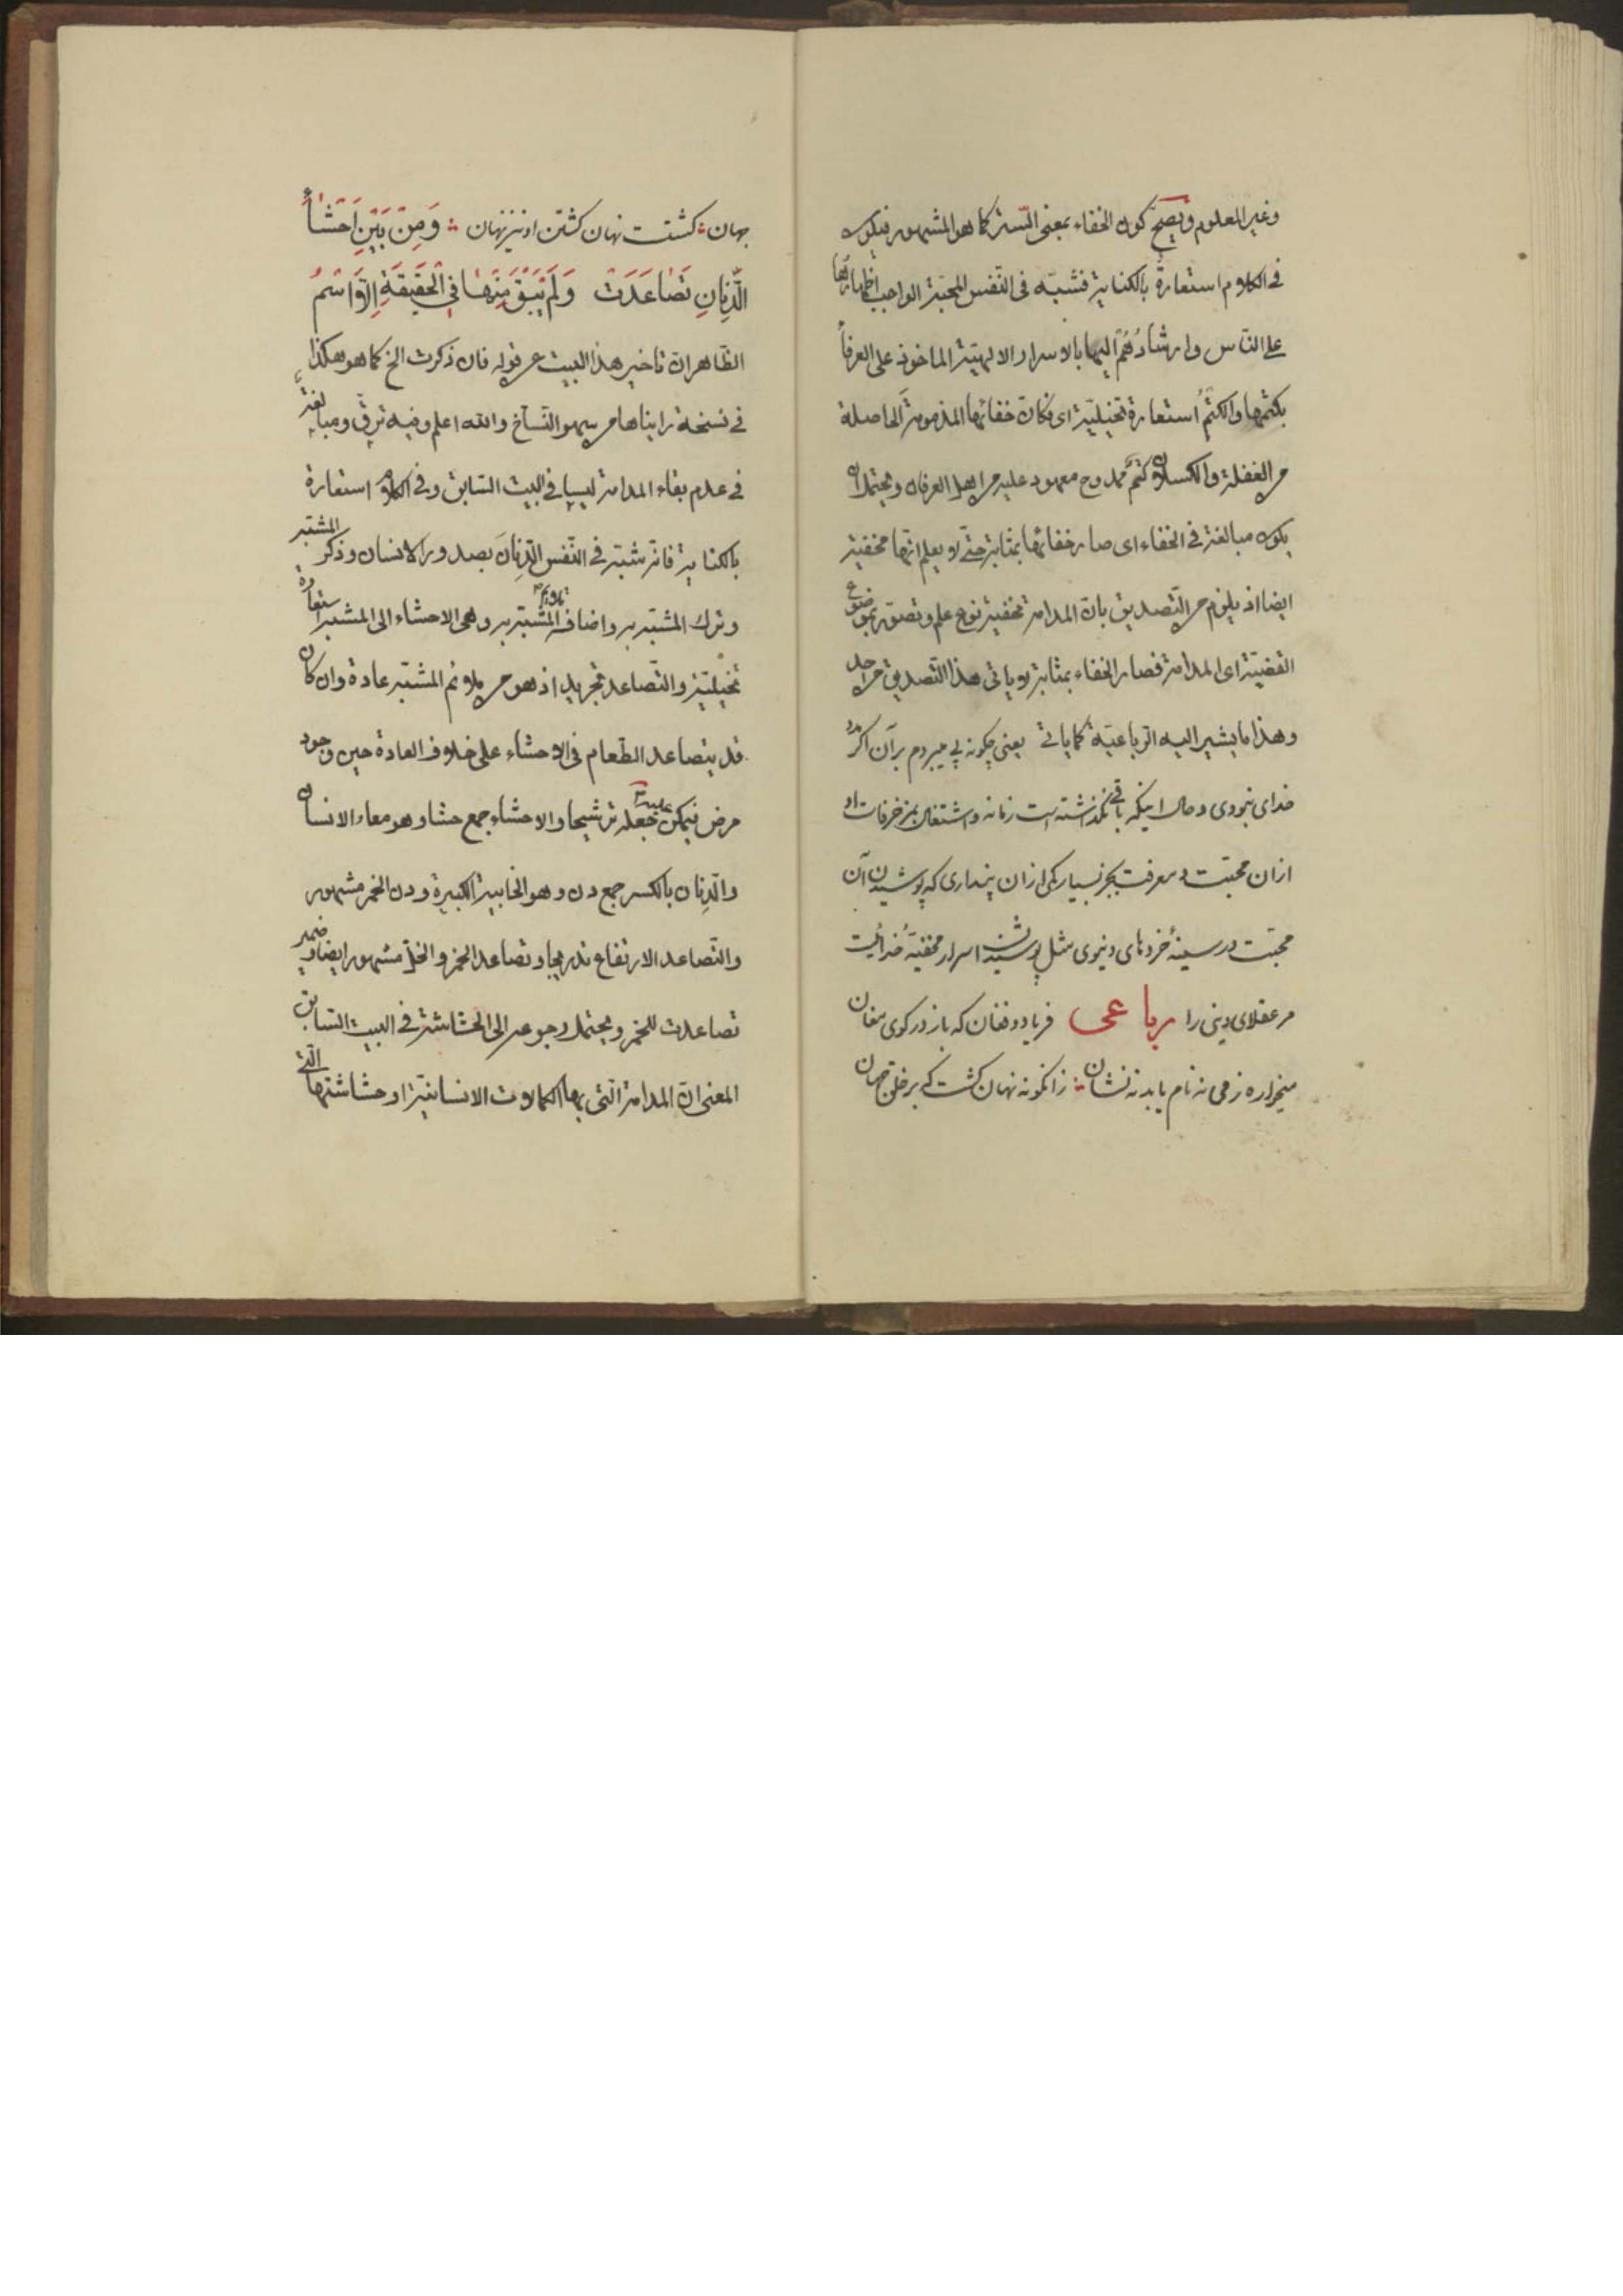 وغير المعلوم ويصحّ كون الخفاء بمعنى السّتر كما هو المشهور فيكون
فى الكلام استعارة بالكناية فشبّه فى النّفس المحبّة الواجب اظهارها
على النّاس وارشادُهُم اليها بالاسرار الالهيّة الماخوذ على العرفاء
بكتمها والكتمُ استعارة تخيليّة اى فكانّ خفائها المذمومة الحاصلة
من الغفلة والكسلان كتمٌ ممدوح معهود عليه من اهل العرفان ويحتمل ان
يكون مبالغة فى الخفاء اى صار خفائها بمثابة حتّى لا يعلم انّها مخفيّة
ايضا اذ يلزم من التّصديق بانّ المدامة مخفيّة نوع علم وتصوّر بموضوع
القضيّة اى المدامة فصار الخفاء بمثابة لا ياتى هذا التّصديق من احد
وهذا ما يشير اليه الرباعيّة كما ياتى يعنى چكونه پى ميبردم برآن اكر مدد
خداى نبودى وحال اينكه باقى نكذاشته است زمانه واشتغال بمزخرفات او
ازان محبّت ومعرفت بجز بسيار كمى ازان پندارى كه پوشيدن آن
محبّت در سينهٔ خردهاى دنيوى مثل پوشيدن اسرار مخفيّهٔ خدائيست
مر عقلاى دينى را رباعى فرياد وفغان كه باز در كوى مغان
ميخواره زمى نه نام يابد نه نشان زانكونه نهان كشت كه بر خلق جهان
جهان كشتست نهان كشتن او نيز نهان وَمِنْ بَيْنِ اَحْشَاءِ
الدِّنَانِ تَصَاعَدَتْ وَلَمْ يَبْقَ مِنْهَا فِي الْحَقِيقَةِ اِلَّا اسْمُ
الظّاهر ان تاخير هذا البيت عن قوله فان ذكرت الخ كما هو هكذا
فى نسخة رايناها من سهو النّسّاخ والله اعلم وفيه ترقّ ومبالغة
فى عدم بقاء المدامة ليسا فى البيت السّابق وفى الكلام استعارة
بالكناية فانّه شبّه فى النّفس الدّنانَ بصدور الانسان وذكر المشبّه
وترك المشبّه به واضافة ملايم المشبّه به وهى الاحشاء الى المشبّه استعارة
تخيليّة والتّصاعد تجريد اذ هو من ملائم المشبّه عادة وان كان
قد يتصاعد الطّعام فى الاحشاء على خلاف العادة حين وجود
مرض فيمكن عليه جعله ترشيحا والاحشاء جمع حشا وهو معاء الانسان
والدّنان بالكسر جمع دن وهو الخابية الكبيرة ودن الخمر مشهور
والتّصاعد الارتفاع تدريجا وتصاعد الخمر والخلّ مشهور ايضا وضمير
تصاعدت للخمر ويحتمل رجوعه الى الحشاشة فى البيت السّابق
المعنى انّ المدامة الّتى بها الكمالات الانسانيّة او حشاشتها الّتى